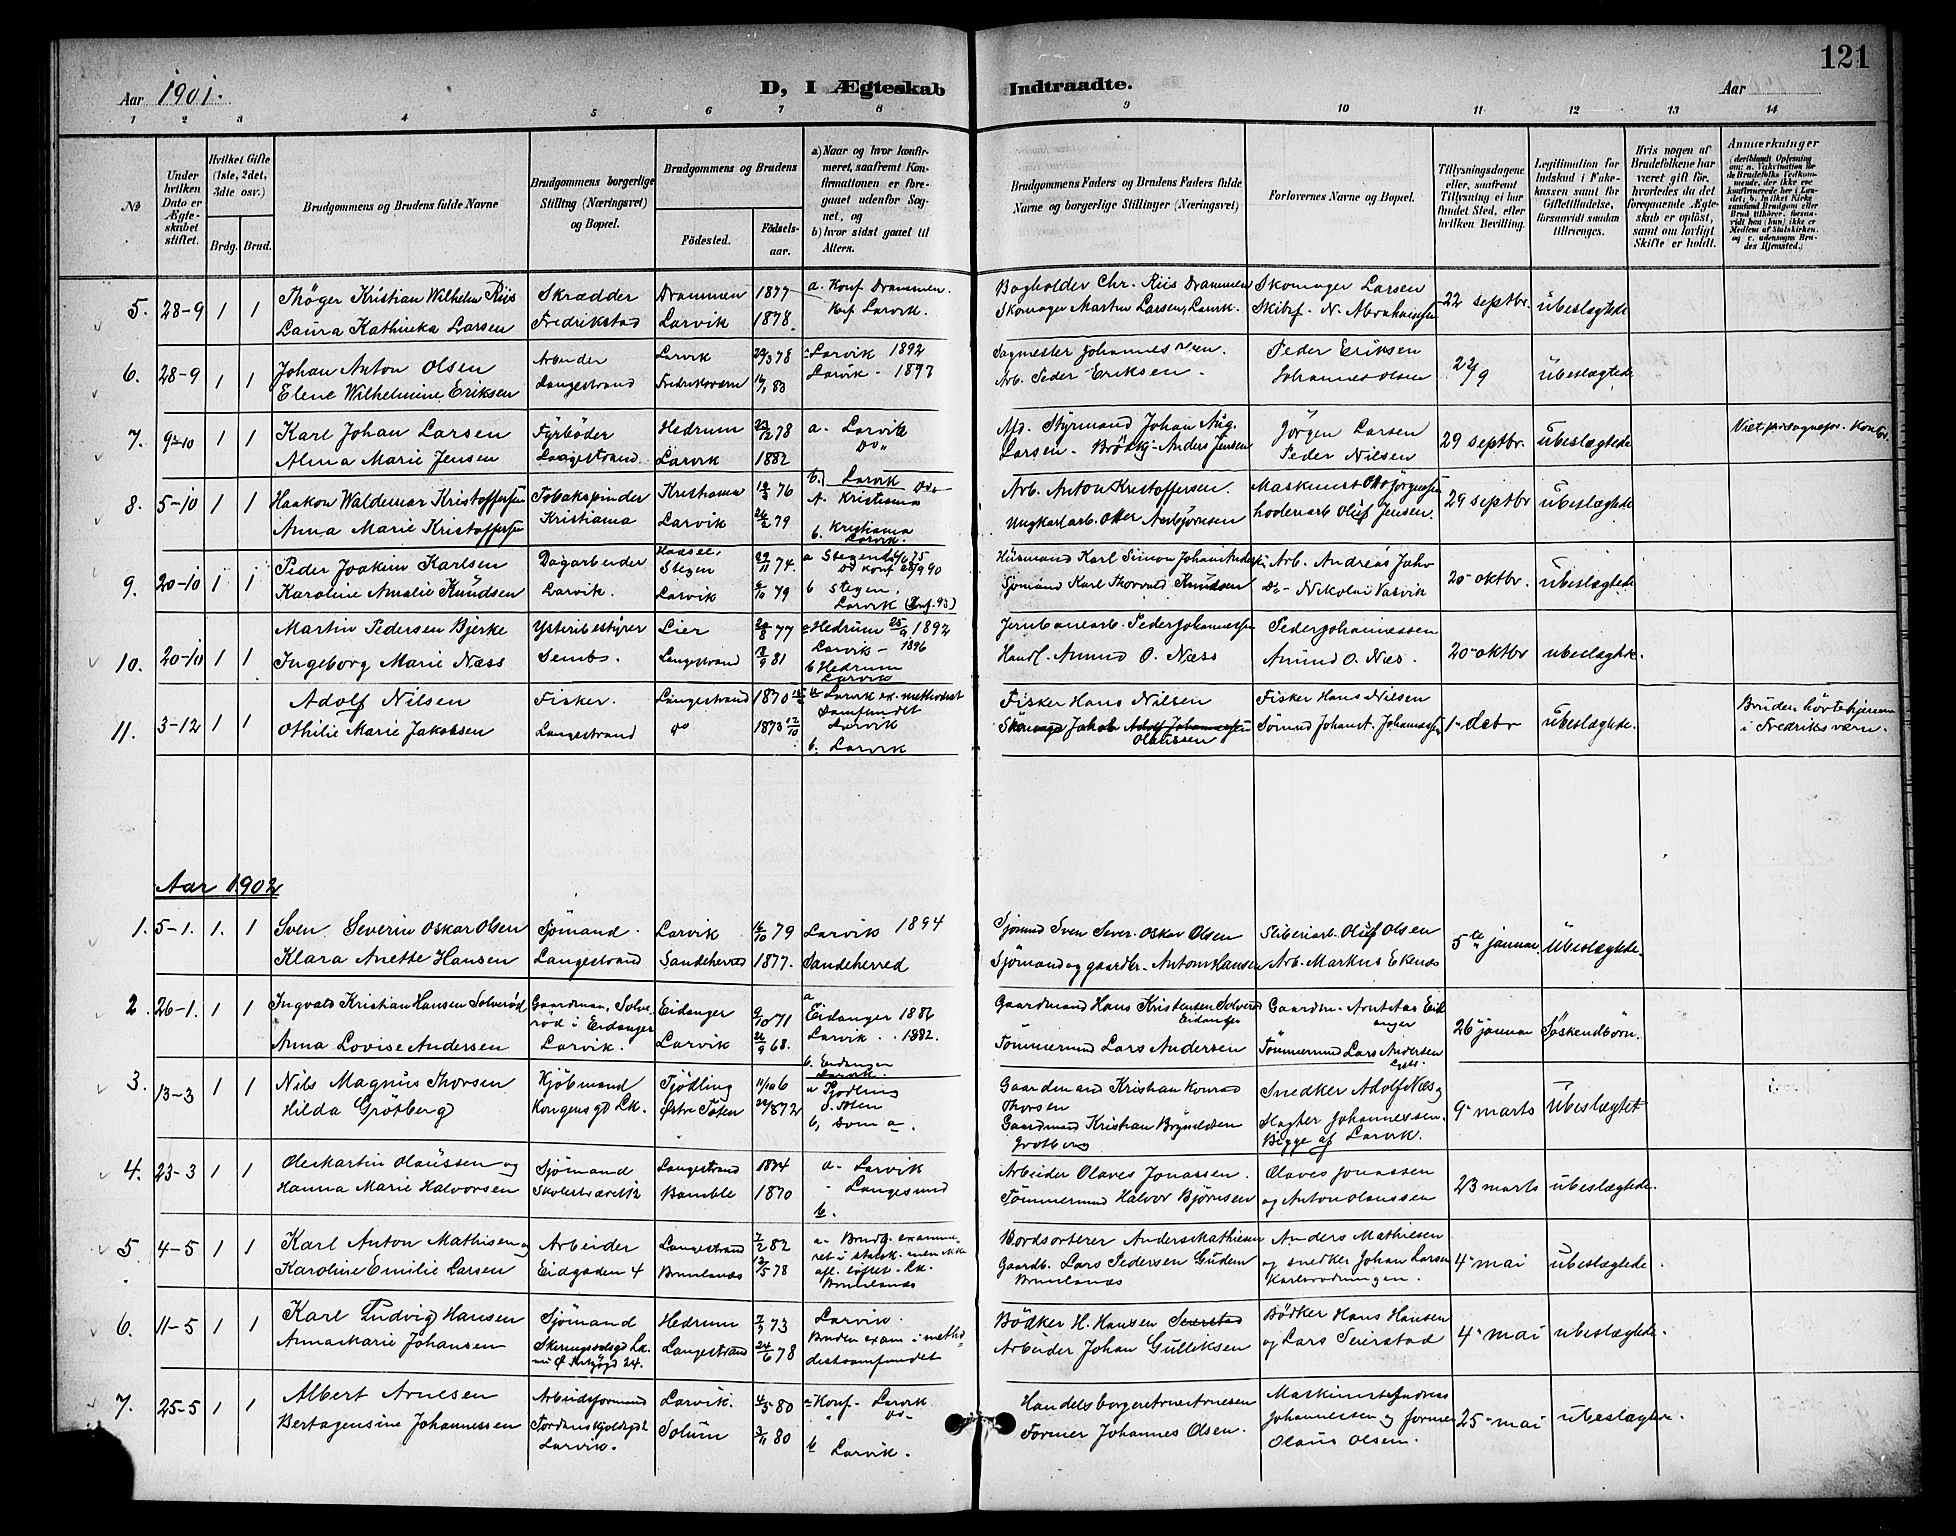 121
Aar 1901. D, I Ægteskab Indtraadte. Aar
1 2 3 4 5 6 7 8 9 10 11 12 13 14
№
Under hvilken Dato er Ægteskabet stiftet.
Hvilket Gifte (1ste, 2det, 3dte osv.)
Brdg. Brud.
Brudgommens og Brudens fulde Navne
Brudgommens borgerlige Stilling (Næringsvei) og Bopæl.
Brudgommens og Brudens
Födested. Födselsaar.
a) Naar og hvor konfirmeret, saafremt Konfirmationen er foregaaet udenfor Sognet, og
b) hvor sidst gaaet til Alters.
Brudgommens Faders og Brudens Faders fulde Navne og borgerlige Stillinger (Næringsvei)
Forlovernes Navne og Bopæl.
Tillysningsdagene eller, saafremt Tillysning ei har fundet Sted, efter hvilken Bevilling.
Legitimation for Indskud i Enkekassen samt for Giftetilladelse, forsaavidt saadan tiltrænges.
Hvis nogen af Brudefolkene har været gift før, hvorledes da det foregaaende Ægteskab er oplöst, samt om lovligt Skifte er holdt.
Anmærkninger
5. 28-9 1 1 Thöger Kristian Wilhelm Riis Skrædder Drammen 1877 a. Konf Drammen. Bogholder Chr. Riis Drammen Skomager Larsen 22 septbr. ubeslægtede
Laura Kathinka Larsen Fredrikstad Larvik 1878. Konf Larvik. Skomager Martin Larsen, Larvik. N. Abrahamsen
6. 28-9 1 1 Johan Anton Olsen Arbeider Larvik 29/3 78 Larvik 1892 Sagmester Johannes Olsen. Peder Eriksen 22/9 ubeslægtede
Elene Wilhelmine Eriksen Langestrand Fredriksværn 83 Larvik - 1897 Arb. Peder Eriksen. Johannes Olsen
7. 9-10 1 1 Karl Johan Larsen Fyrböder Hedrum 23/12 78 a. Larvik Afd. Styrmand Johan Aug. Jörgen Larsen 29 septbr. ubeslægtede
Alma Marie Jensen Langestrand Larvik 1882 Do. Larsen - Anders Jensen Peder Nilsen
b. Larvik Do
8. 5-10 1 1 Haakon Waldemar Kristoffersen Tobakspinder Kristiania 76 a. Kristiania Arb. Anton Kristoffersen. Maskinist Otto Jörgensen 29 septbr ubeslægtede
Anna Marie Kristoffersen Kristiania Larvik 26/2 79 Ungkarl arb. Otter Aasbjörnsen Oluf Jensen.
b. Kristiania
Larvik.
9. 20-10 1 1 Peder Joakim Karlsen Dagarbeider Hassel, Stegen 29/11 74. a Stegen Husmand Karl Simon Johan Arb. Andreas 20 oktbr. ubeslægtede
Karoline Amalie Knudsen Larvik. Larvik 79 b Stegen. Sjömand Karl Thorvald Knudsen Do - Nikolai Vasvik
Larvik (Konf. 93)
10. 20-10 1 1 Martin Pedersen Bjerke Ysteribestyrer Lier 77 a Hedrum 25/9 1892 Jernbanearb. Peder Johannessen Peder Johannessen 20 oktbr ubeslægtede.
Ingeborg Marie Næss Sembs. Langestrand 81 Larvik - 1896 Handl. Amund O. Næss Amund O. Næs.
b Hedrum
Larvik
11. 3-12 1 1 Adolf Nilsen Fisker. Langestrand 1870 a Larvik ev. methodist Fisker Hans Nilsen Fisker Hans Nilsen 1 debr ubeslægtede. Bruden hörte hjemme
Othilie Marie Jakobsen Langestrand do 1873 17/10 Samfundet Jakob Adolf Johannessen i Fredriksværn.
Larvik Olaussen
b. Larvik
Aar 1902
1. 5-1. 1. 1 Sven Severin Oskar Olsen Sjömand. Larvik 16/10 79 Larvik 1894 Sjömand Sven Sever. Oskar Olsen Oluf Olsen 5te januar. ubeslægtede.
Klara Anette Hansen Langestrand Sandeherred 1877. Sandeherred Sjömand og gaardbr. Anton Hansen Arb. Markus Ekenæs
2. 26-1. 1 1 Ingvald Kristian Hansen Solverød Gaardman, Solverød i Eidanger Eidanger 9/10 71 a. Eidanger 1886 Gaardmand Hans Kristensen Solverød Eidanger Gaardm. 26 januar Söskendbörn.
Anna Lovise Andersen Larvik. Larvik 26/9 68. Larvik. 1882. Tömmermand Lars Andersen Tömmermand Lars Andersen
b. Eidanger
Larvik.
3. 13-3 1 1 Nils Magnus Thorsen Kjöbmand Tjödling a Tjodling Gaardmand Kristian Konrad Thorsen Snedker Adolf Næs og 9 marts ubeslægtet
Hilda Grötberg Kongensgd Lk. Östre Toten 1872 Ö. Toten Gaardmand Kristian Brynildsen Grotberg Slagter Johannessen.
b, som a. Begge af Larvik.
4. 23-3 1 1 Ole Martin Olaussen og Sjömand Langestrand 1874 a. Larvik Arbeider Olaves Jonassen. Olaves Jonassen 23 marts ubeslægtede.
Hanna Marie Halvorsen Bamble 1870 - Langesund Tömmermand Halvor Björnsen og Anton Olaussen
b.
5 4-5 1 1 Karl Anton Mathisen og Arbeider Langestrand 82 a. Brudg. examineret i statsk. men ikke Bordsorterer Anders Mathiesen Anders Mathiesen 4 mai ubeslægtede.
Karoline Emilie Larsen Eidgaden 4 Brunlanæs 12/5 78 afl. löftet. Lk. Gaardb. Lars Pedersen Gudem og snedker Johan Larsen
Brunlanæs Brunlanæs
6. 11-5 1 1 Karl Ludvig Hansen Sjömand Hedrum 73 Larvik. Bödker H. Hansen Seierstad Bödker Hans Hansen 4 mai ubeslægtede.
Anna Marie Johansen Langestrand 24/6 78 Bruden exam. i methodistsamfundet Arbeider Johan Gulliksen og Lars Seierstad
7. 25-5 1 1 Albert Arnesen Arbeidsformand Larvik. 4/5 80 a Konf- Larvik Handelsborger Arne Arnesen Maskinist Andreas 25 mai ubeslægtede.
Berta Gensine Johannessen Tordenskjoldsgd Solum 3/11 80 do Former Johannes Olsen. Johannessen og former
Larvik. b Larvik. Olaus Olsen.